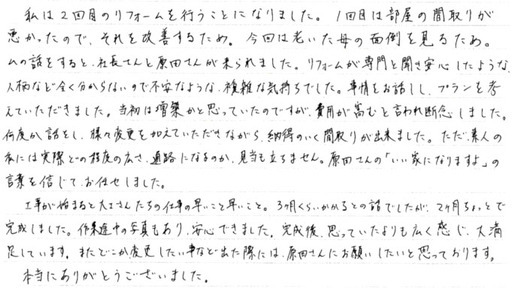 私は2回目のリフォームを行うことになりました。1回目は部屋の間取りが
悪かったので、それを改善するため。今回は老いた母の面倒を見るため。
ムの話をすると、社長さんと原田さんが来られました。リフォームが専門と聞き安心したような、
人柄など全く分からないので不安なような、複雑な気持ちでした。事情をお話しし、プランを考
えていただきました。当初は増築かと思っていたのですが、費用が嵩むと言われ断念しました。
何度か話をし、様々変更を加えていただきながら、納得のいく間取りが出来ました。ただ素人の
私には実際どの程度の広さ、通路になるのか、見当も立ちません。原田さんの「いい家になりますよ」の
言葉を信じて、お任せしました。
工事が始まると大工さんたちの仕事の早いこと早いこと。3ヶ月くらいかかるとの話でしたが、2ヶ月ちょっとで
完成しました。作業途中の写真もあり、安心できました。完成後、思っていたよりも広く感じ、大満
足しています。またどこか変更したい事など出た際には、原田さんにお願いしたいと思っております。
本当にありがとうございました。